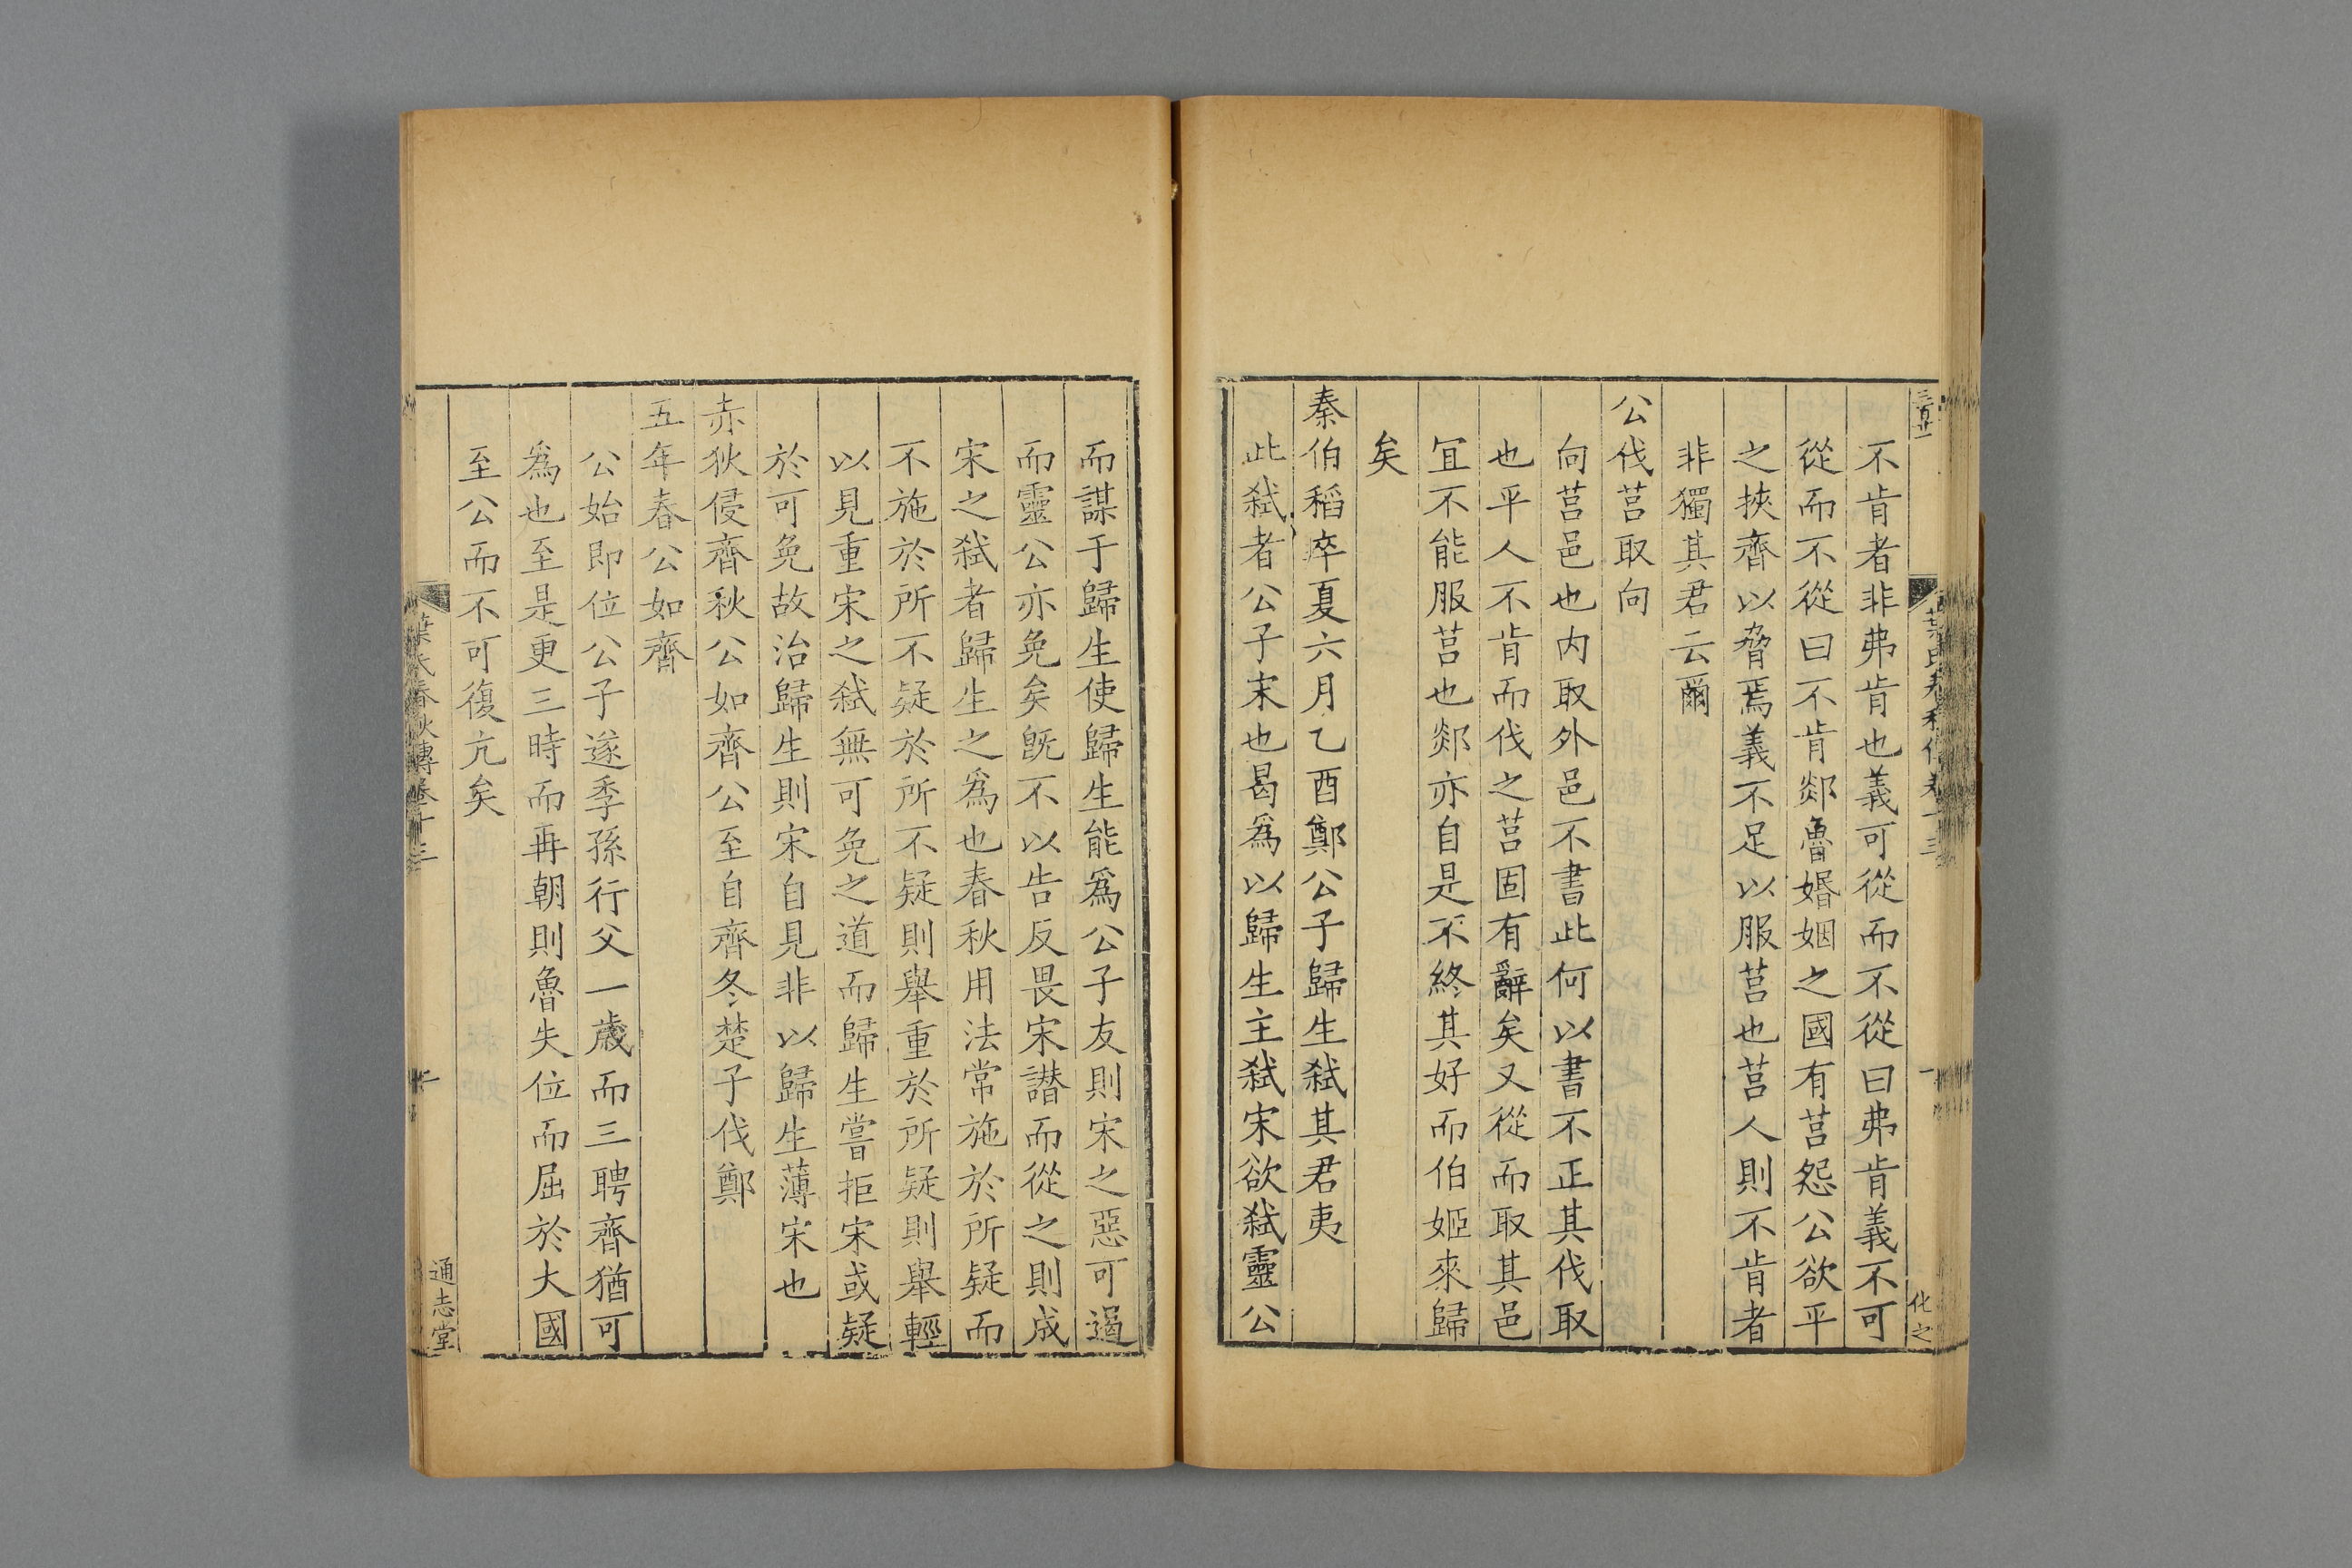 三百廿一
不肯者非弗肯也義可從而不從曰弗肯義不可
從而不從曰不肯郯魯婚姻之國有莒怨公欲平
之挾齊以脅焉義不足以服莒也莒人則不肯者
非獨其君云爾
公伐莒取向
向莒邑也内取外邑不書此何以書不正其伐取
也平人不肯而伐之莒固有辭矣又從而取其邑
宜不能服莒也郯亦自是不終其好而伯姬來歸
矣
秦伯稻卒夏六月乙酉鄭公子歸生弑其君夷
此弑者公子宋也曷爲以歸生主弑宋欲弑靈公
而謀于歸生使歸生能爲公子友則宋之惡可遏
而靈公亦免矣旣不以告反畏宋譖而從之則成
宋之弑者歸生之爲也春秋用法常施於所疑而
不施於所不疑於所不疑則舉重於所疑則舉輕
以見重宋之弑無可免之道而歸生嘗拒宋或疑
於可免故治歸生則宋自見非以歸生薄宋也
赤狄侵齊秋公如齊公至自齊冬楚子伐鄭
五年春公如齊
公始即位公子遂季孫行父一歲而三聘齊猶可
爲也至是更三時而再朝則魯失位而屈於大國
至公而不可復亢矣
葉氏春秋傳卷十三
通志堂